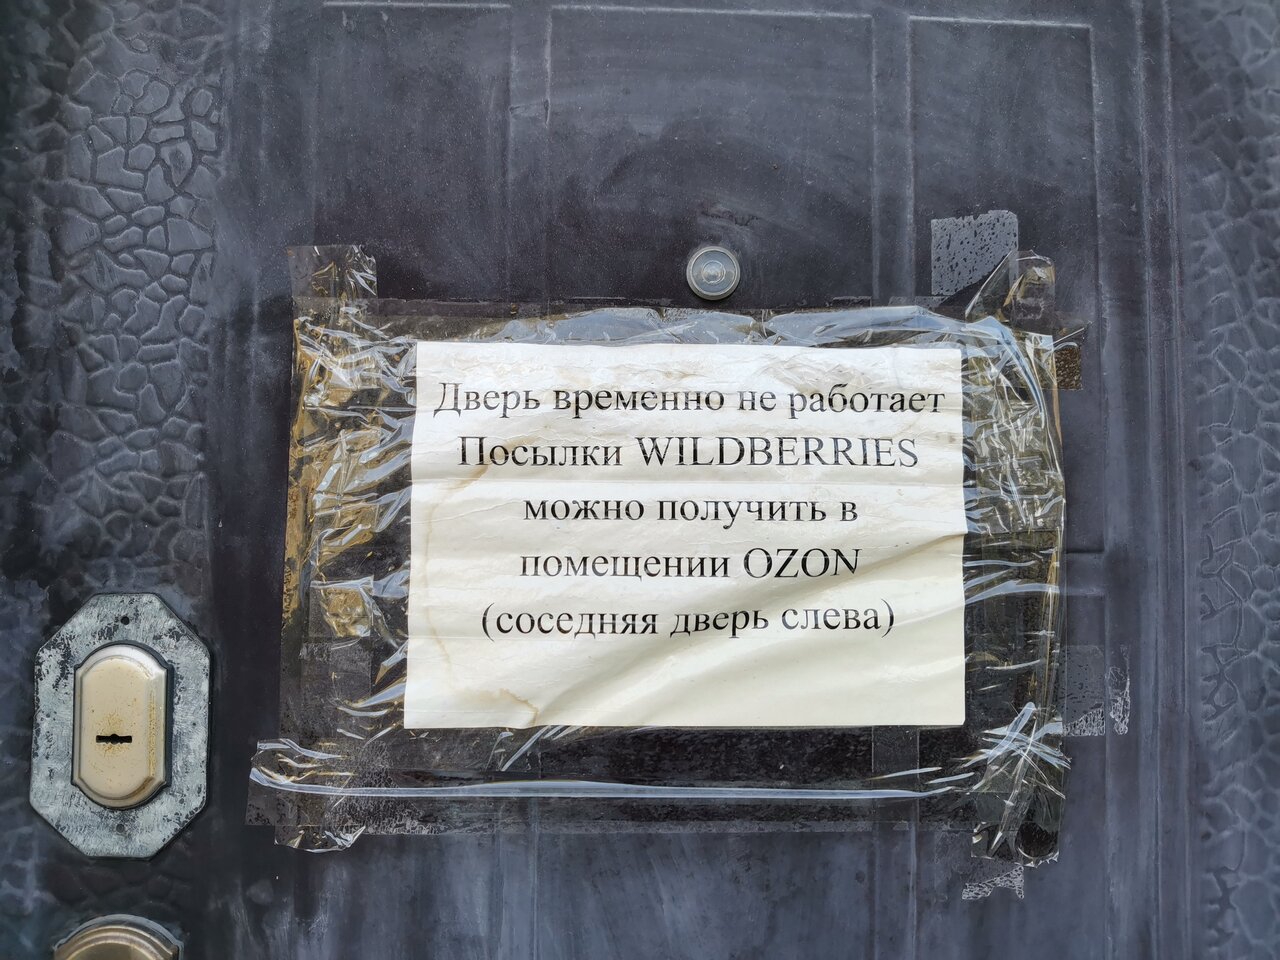 Дверь временно не работает
Посылки WILDBERRIES
можно получить в
помещении OZON
(соседняя дверь слева)